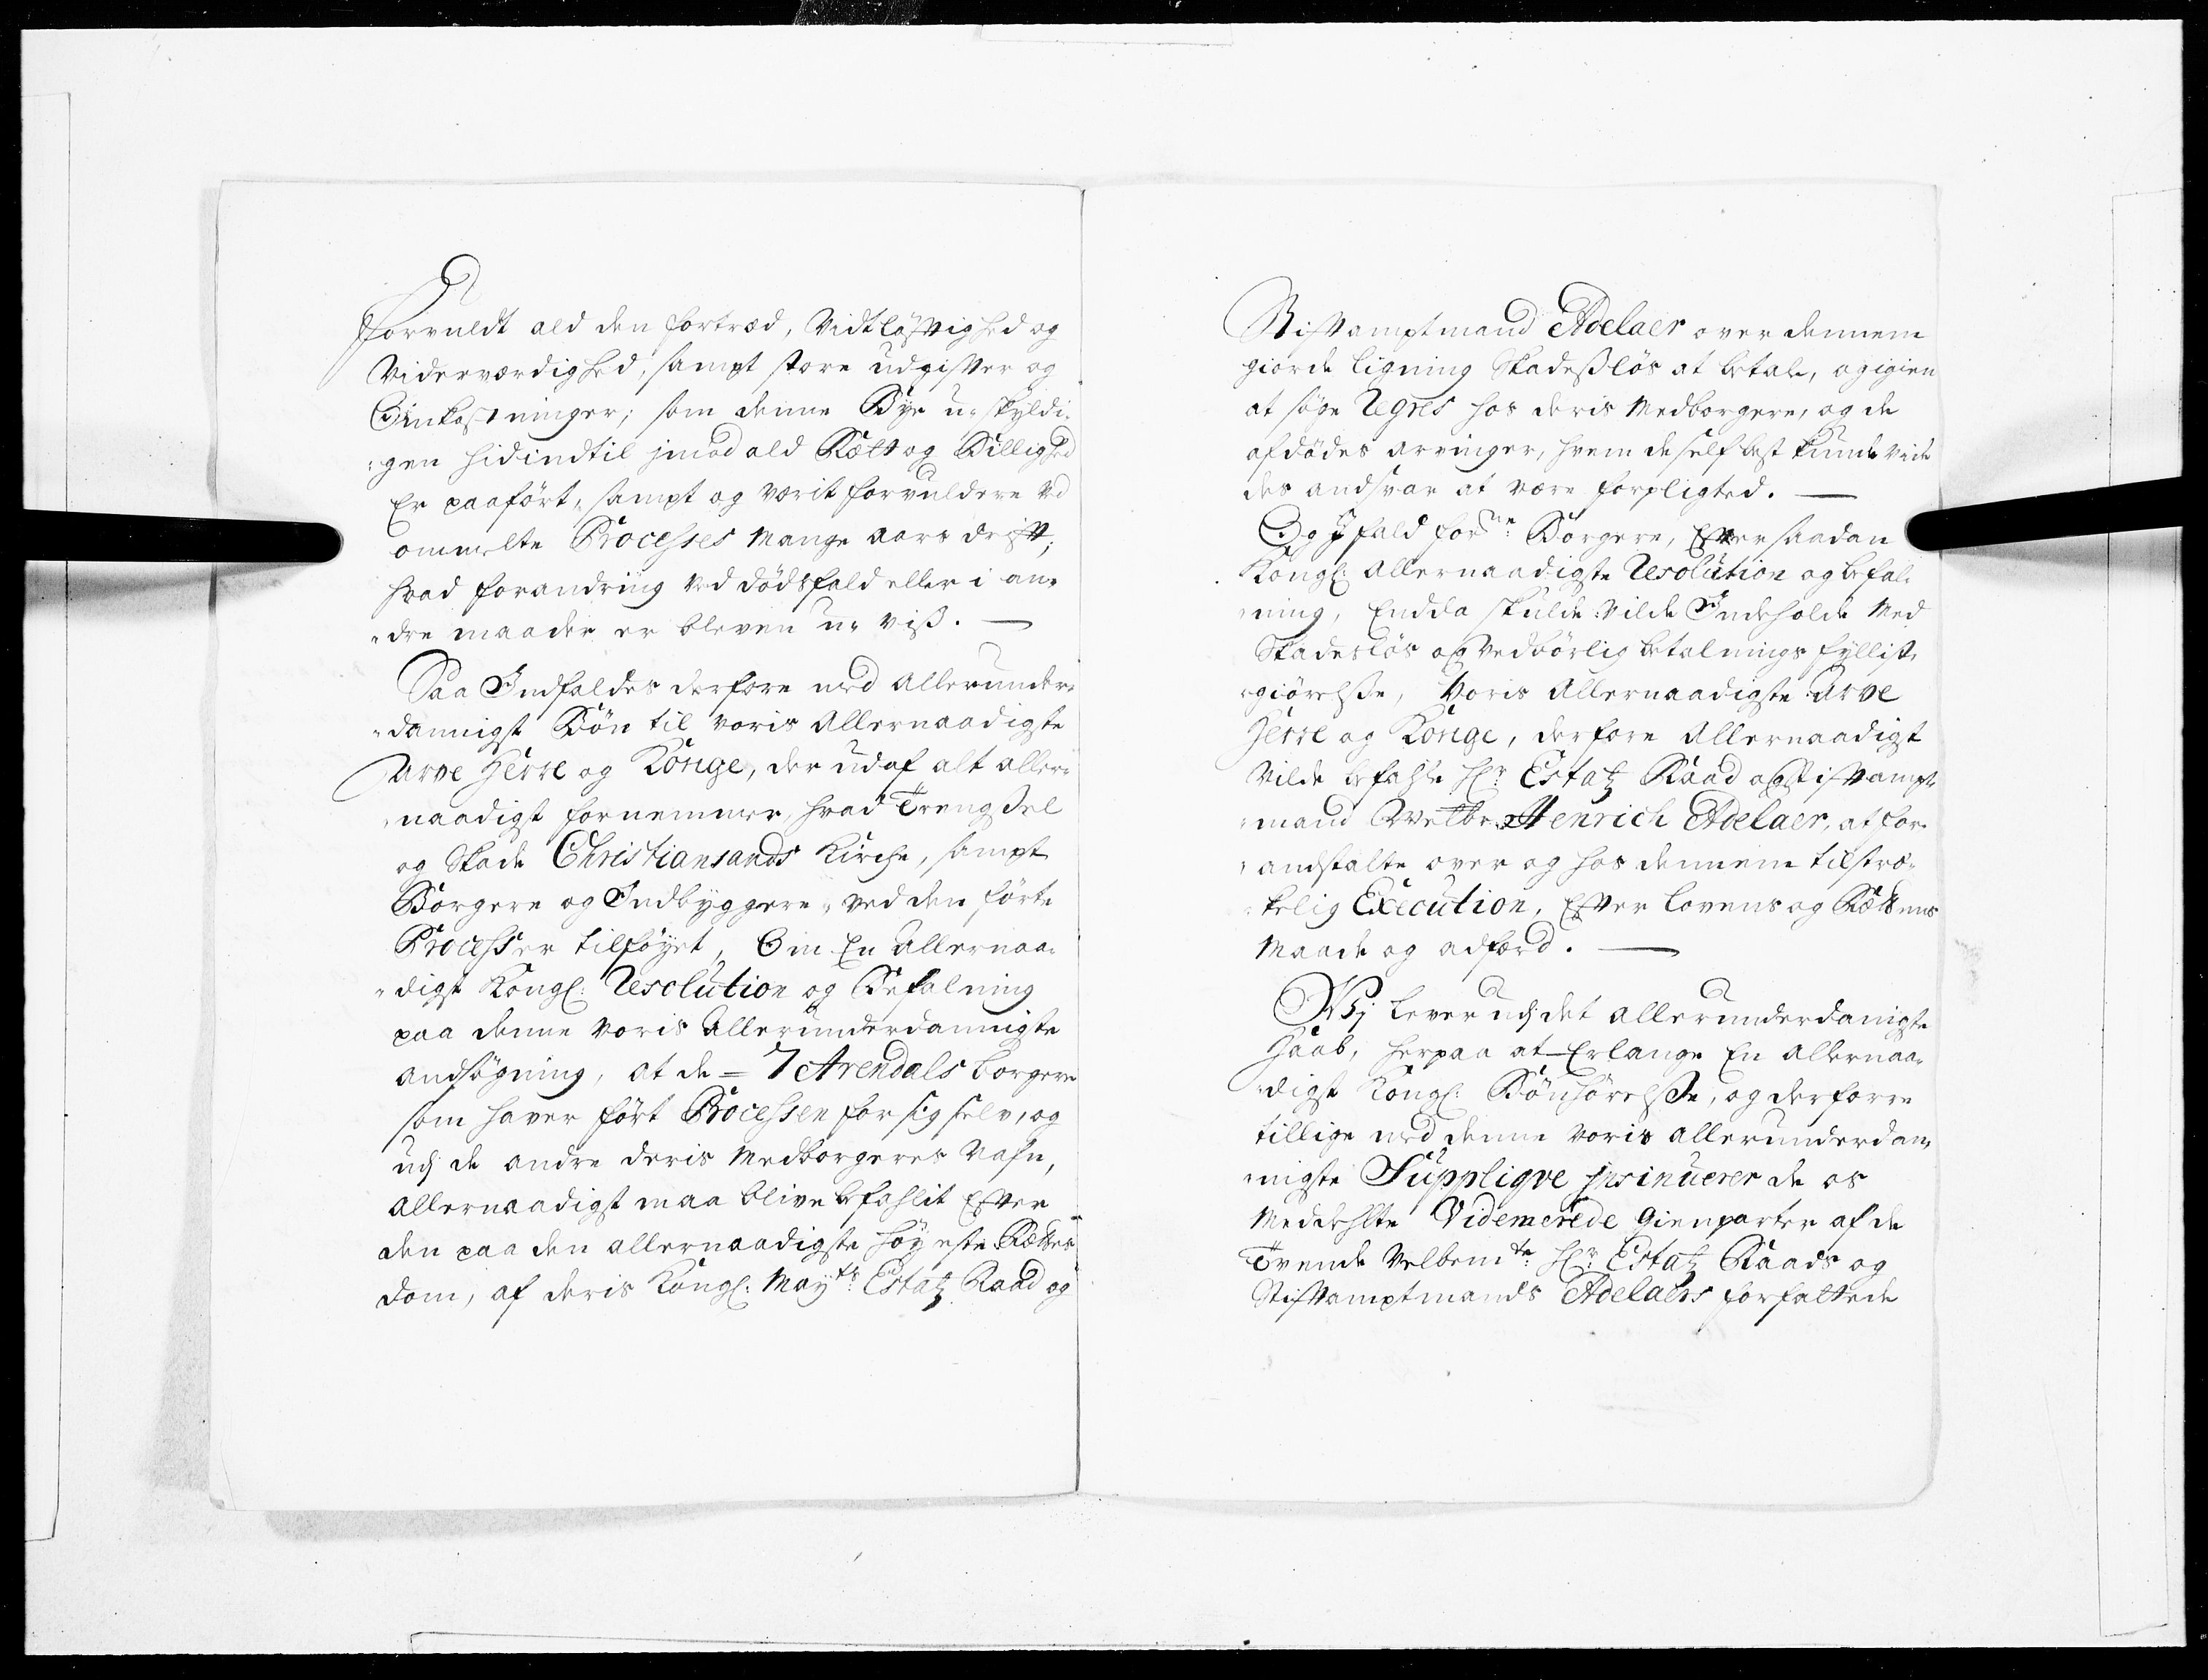 Forvuldt ald den fortræd, Vidtløfftighed og
Viderværdighed, sampt store udgiffter og
Omkostninger, som denne Bye u-skyldi-
gen hidindtil jmod ald Rætt og Billighed
Er paaført, sampt og værit forvuldere ved
ommelte Processes Mange aars drifft;
hvad forandring ved dødsfald eller i an-
dre maader er bleven u-viß. —
Saa Indfaldes derfore med Allerunder-
dannigst Bøn til voris Allernaadigste
Arve Herre og Konge, der udaf alt aller-
naadigst fornemmer, hvad Trengßel
og Skade Christiansands Kirche, sampt
Borgere og Indbyggere, ved den førte
Processer tilføyet, Om En Allernaa-
digst Kongl: Resolution og Befalning
paa denne voris Allerunderdannigste
andsøgning, at de = 7 Arendals borgere
som haver ført Processen for sig selv, og
udj de andre deris Medborgeres Nafn,
Allernaadigst maa blive befahlit Effter
den paa den allernaadigste Høyeste Rættes
dom, af deris Kongl: Maytz: Estatz Raad og
Stifftamptmand Adelaer over dennem
giorde ligning Skadesløs at betale, og igien
at søge Regres hos deris Medborgere, og de
afdødes arvinger, hvem de self best kunde vide
des andsvar at være forpligted. —
Og J fald forne: Borgere, Effter saadan
Kongl: Allernaadigste Resolution og befal-
ning, Endda skulde vilde Indeholde Med
Skadesløs og vedbørlig betalnings fyllist-
giørelsße, Voris Allernaadigste Arve
Herre og Konge, derfore Allernaadigst
vilde befahle Hr: Estatz Raad og Stifftampt-
mand Welbr. Henrich Adelaer, at for-
andstalte over og hos dennem tilstræ-
kelig Execution, Effter Lovens og Rættens
Maade og adfærd. —
Wj lever udj det allerunderdanigste
Haab, herpaa at Erlange En Allernaa-
digst Kongl: Bønhørelsße, og derforre
tillige med denne voris allerunderdan-
nigste Suppliqve jnsinuerer de os
Meddehlte Videmerede Gienparter af de
Tvende Velbemte: Hr: Estatz Raads og
Stifftamptmands Adelaers forfattede